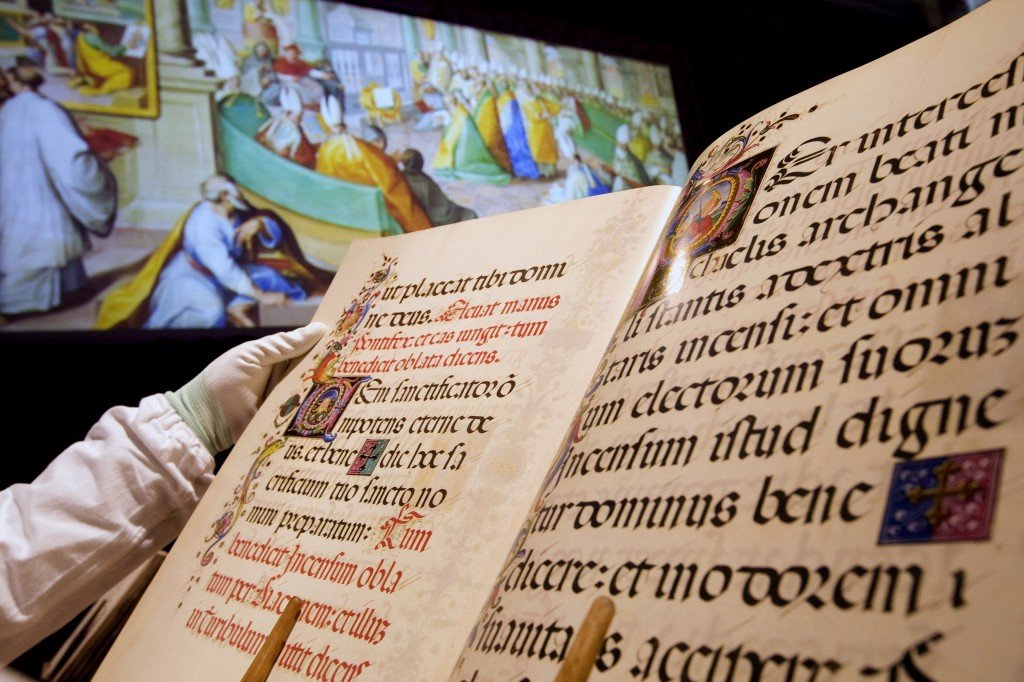 ut placeat tibi domi
ne deus. Sicut manus
pontifex et eas iungit: tum
benedicit oblata dicens.
Uein sanctificatorõ
nipotens eterne de
us. et bene dic hoc sa
crificium tuo sancto no
mini preparatum: Tum
benedicit Incensum obla
tum per Diaconem: et illud
in thuribulum mittit dicens
Per intercess
onem beati m
chaelis archange
li stantis adextris al
taris incensi: et omni
um electorum suoruz
Incensum istud digne
tur dominus bene
dicere: et in odorem i
suavitatis accipere